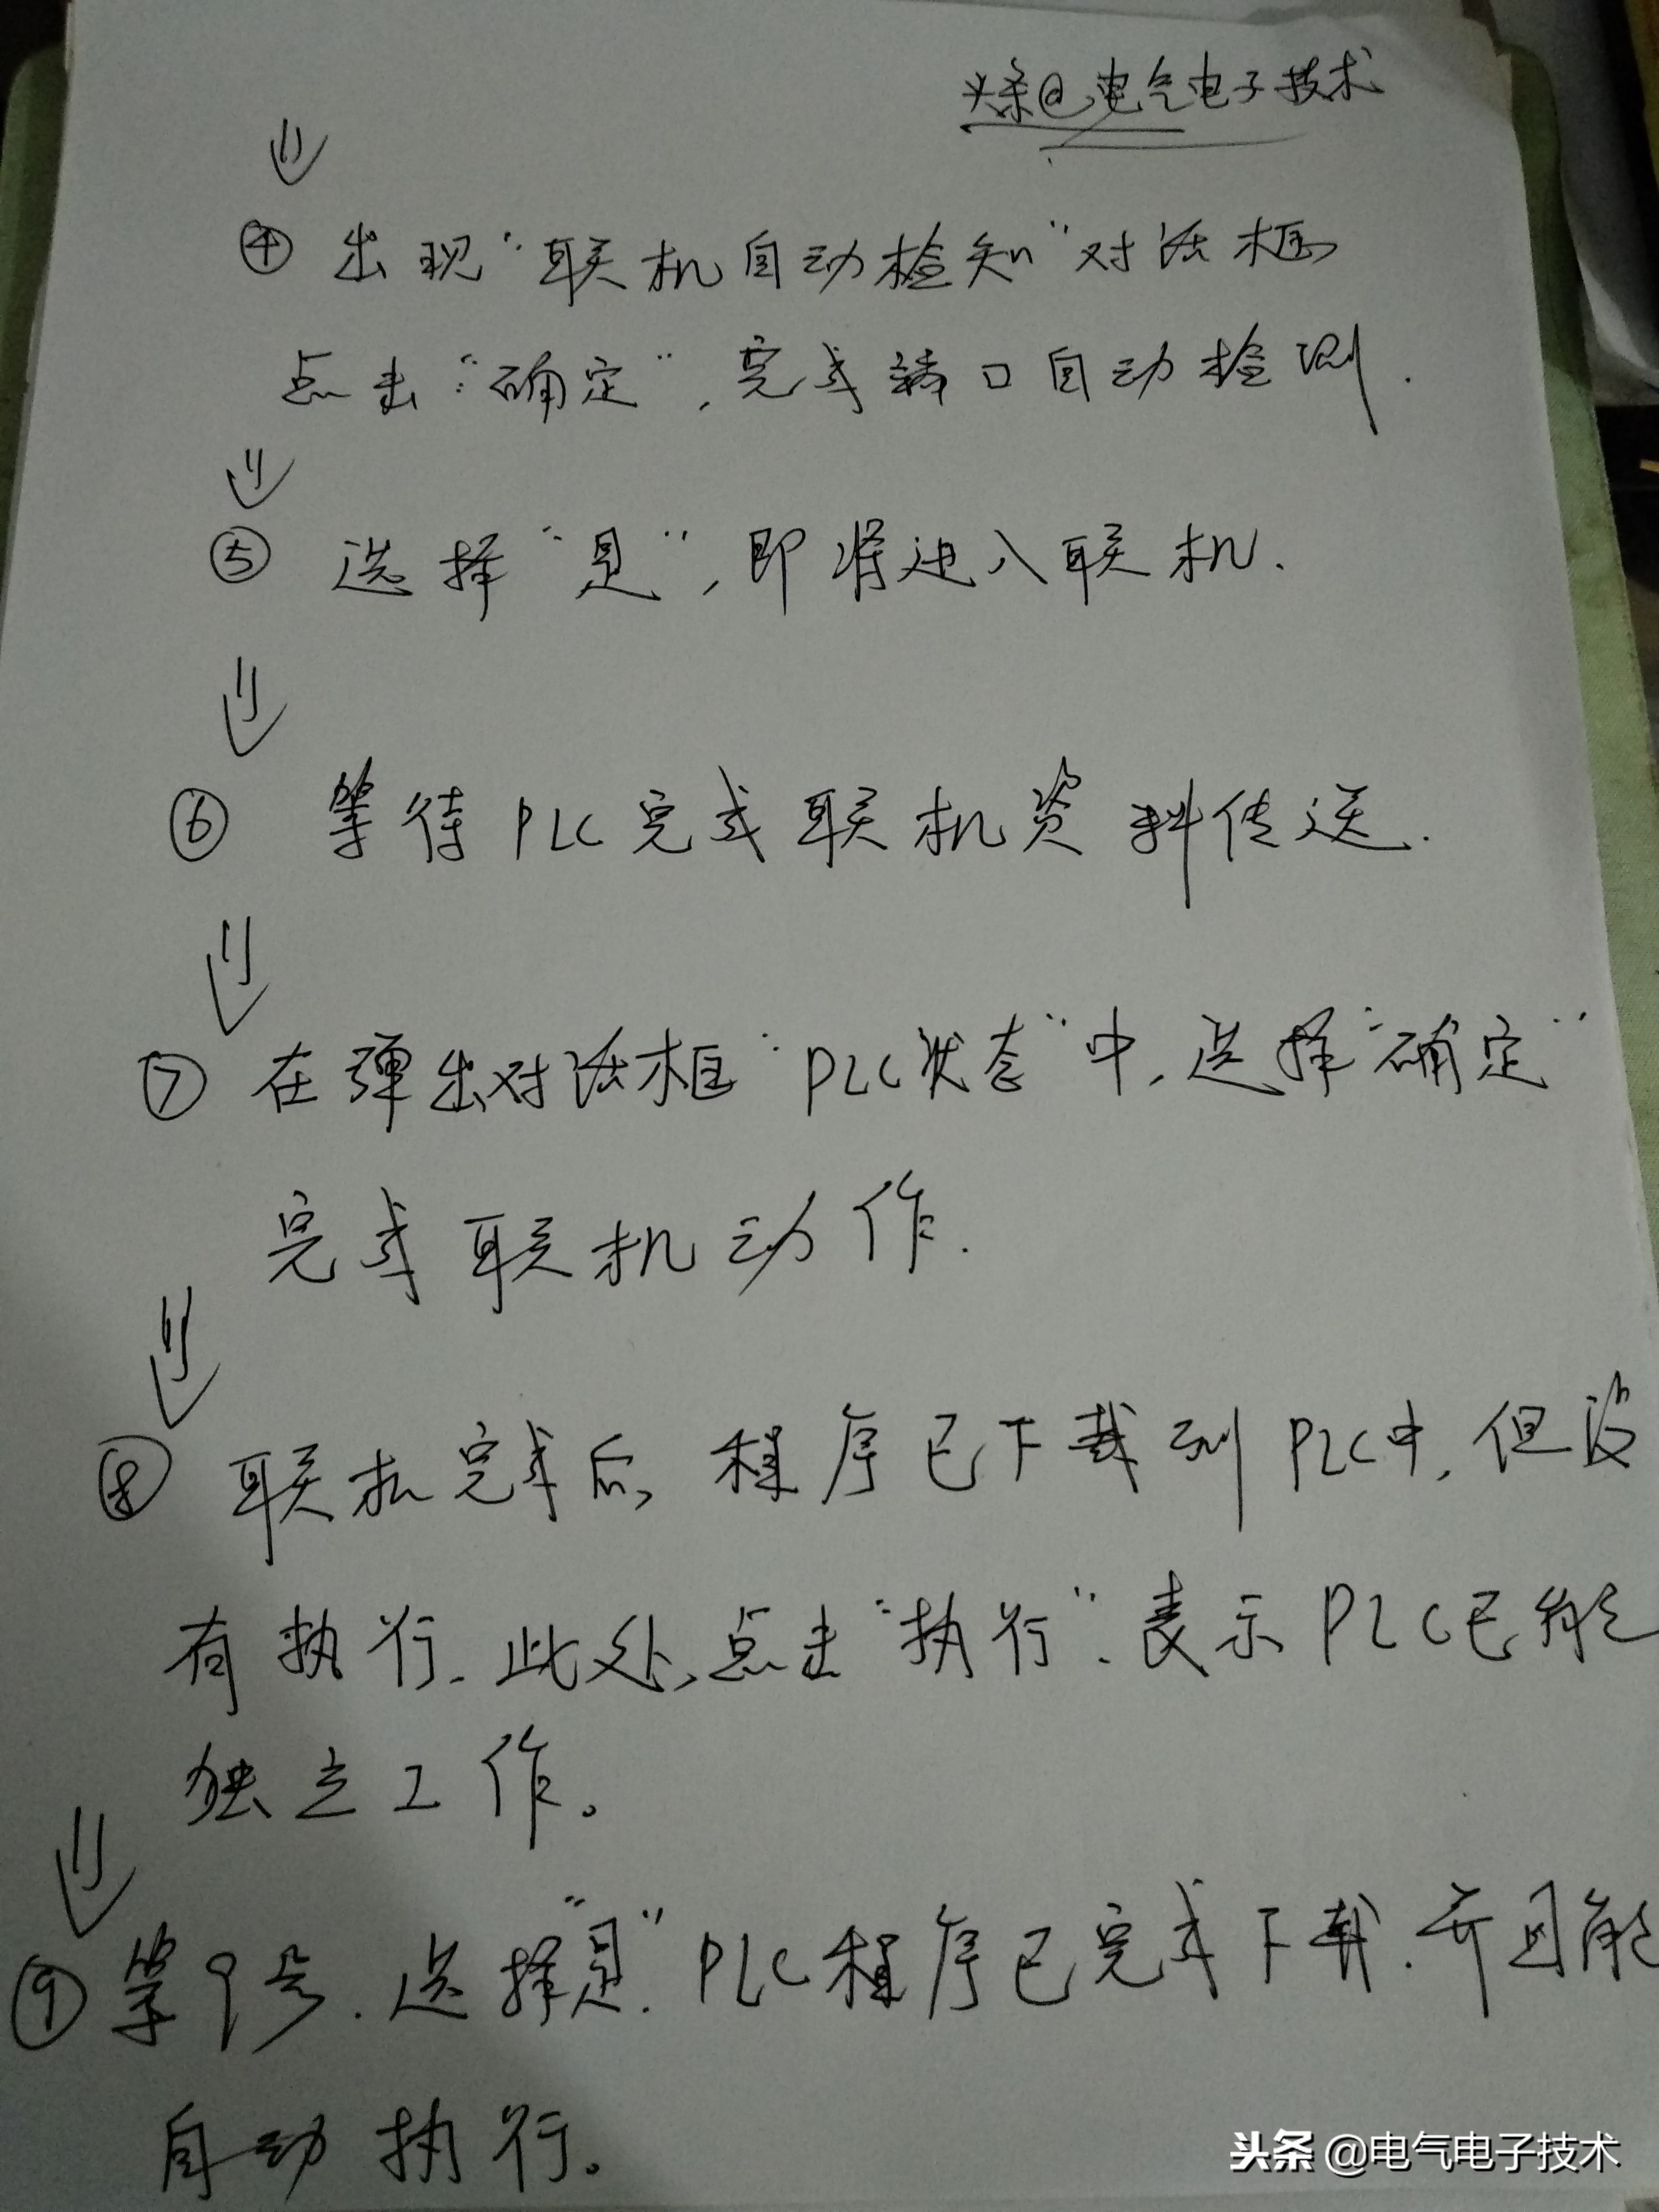 头条@电气电子技术
④ 出现“联机自动检知”对话框,
点击“确定”,完成端口自动检测.
⑤ 选择“是”,即将进入联机.
⑥ 等待PLC完成联机资料传送.
⑦ 在弹出对话框“PLC状态”中,选择“确定”
完成联机动作.
⑧ 联机完成后,程序已下载到PLC中,但没
有执行.此处,点击“执行”.表示PLC已能
独立工作。
⑨ 第9号.选择“是”.PLC程序已完成下载.并且能
自动执行。
头条 @电气电子技术